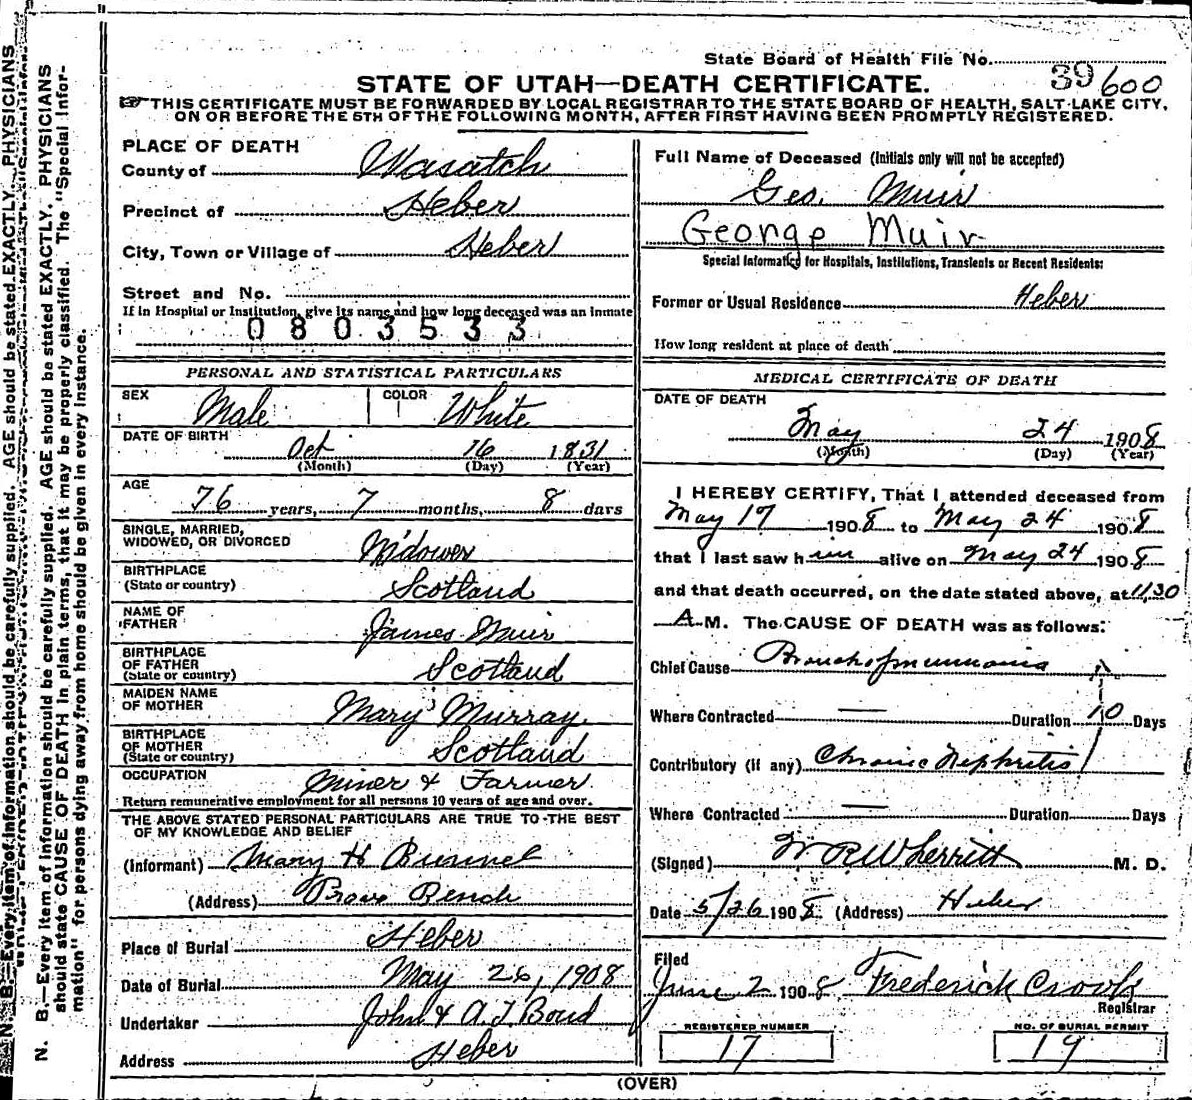 State Board of Health File No. 39600
STATE OF UTAH—DEATH CERTIFICATE.
THIS CERTIFICATE MUST BE FORWARDED BY LOCAL REGISTRAR TO THE STATE BOARD OF HEALTH, SALT LAKE CITY,
ON OR BEFORE THE 5TH OF THE FOLLOWING MONTH, AFTER FIRST HAVING BEEN PROMPTLY REGISTERED.
PLACE OF DEATH
County of Wasatch
Precinct of Heber
City, Town or Village of Heber
Street and No.
If in Hospital or Institution, give its name and how long deceased was an inmate
0803533
PERSONAL AND STATISTICAL PARTICULARS
SEX Male COLOR White
DATE OF BIRTH Oct 16 1831
(Month) (Day) (Year)
AGE
76 years, 7 months, 8 days
SINGLE, MARRIED,
WIDOWED, OR DIVORCED Widower
BIRTHPLACE
(State or country) Scotland
NAME OF
FATHER James Muir
BIRTHPLACE
OF FATHER
(State or country) Scotland
MAIDEN NAME
OF MOTHER Mary Murray
BIRTHPLACE
OF MOTHER
(State or country) Scotland
OCCUPATION Miner & Farmer
Return remunerative employment for all persons 10 years of age and over.
THE ABOVE STATED PERSONAL PARTICULARS ARE TRUE TO THE BEST
OF MY KNOWLEDGE AND BELIEF
(Informant) Mary H Bunnel
(Address) Provo Bench
Place of Burial Heber
Date of Burial May 26, 1908
Undertaker John & A.T. Bond
Address Heber
Full Name of Deceased (Initials only will not be accepted)
Geo. Muir
George Muir
Special Information for Hospitals, Institutions, Transients or Recent Residents:
Former or Usual Residence Heber
How long resident at place of death
MEDICAL CERTIFICATE OF DEATH
DATE OF DEATH
May 24 1908
(Month) (Day) (Year)
I HEREBY CERTIFY, That I attended deceased from
May 17 1908 to May 24 1908
that I last saw him alive on May 24 1908
and that death occurred, on the date stated above, at 11,30
A.M. The CAUSE OF DEATH was as follows:
Chief Cause Bronchopneumonia
Where Contracted — Duration 10 Days
Contributory (if any) Chronic Nephritis
Where Contracted — Duration Days
(Signed) W R Wherritt M. D.
Date 5/26 1908 (Address) Heber
Filed
June 2 1908 Frederick Crook
Registrar
REGISTERED NUMBER
17
NO. OF BURIAL PERMIT
19
(OVER)
N. B.—Every item of information should be carefully supplied. AGE should be stated EXACTLY. PHYSICIANS
should state CAUSE OF DEATH in plain terms, that it may be properly classified. The "Special Infor-
mation" for persons dying away from home should be given in every instance.
N. B.—Every item of information should be carefully supplied. AGE should be stated EXACTLY. PHYSICIANS